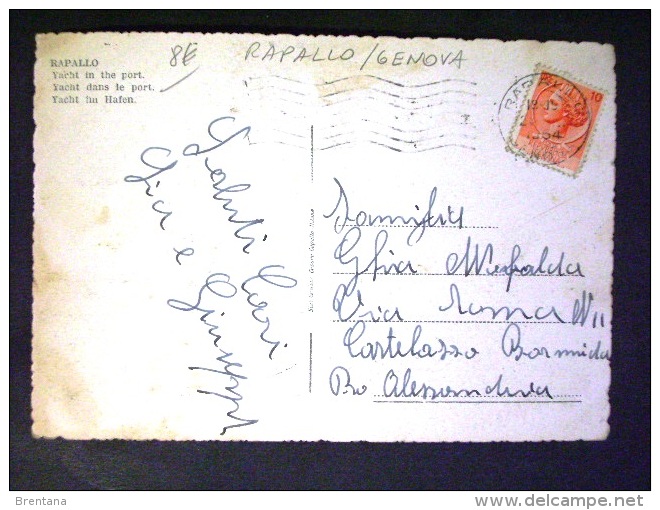 RAPALLO
Yacht in the port.
Yacht dans le port.
Yacht im Hafen.
8€
RAPALLO/GENOVA
10
Saluti Cari
Lia e Giuseppe
Famiglia
Ghia Mafalda
Via Roma N 11
Castelazzo Bormida
Pro Alessandria
Brentana
delcampe.net